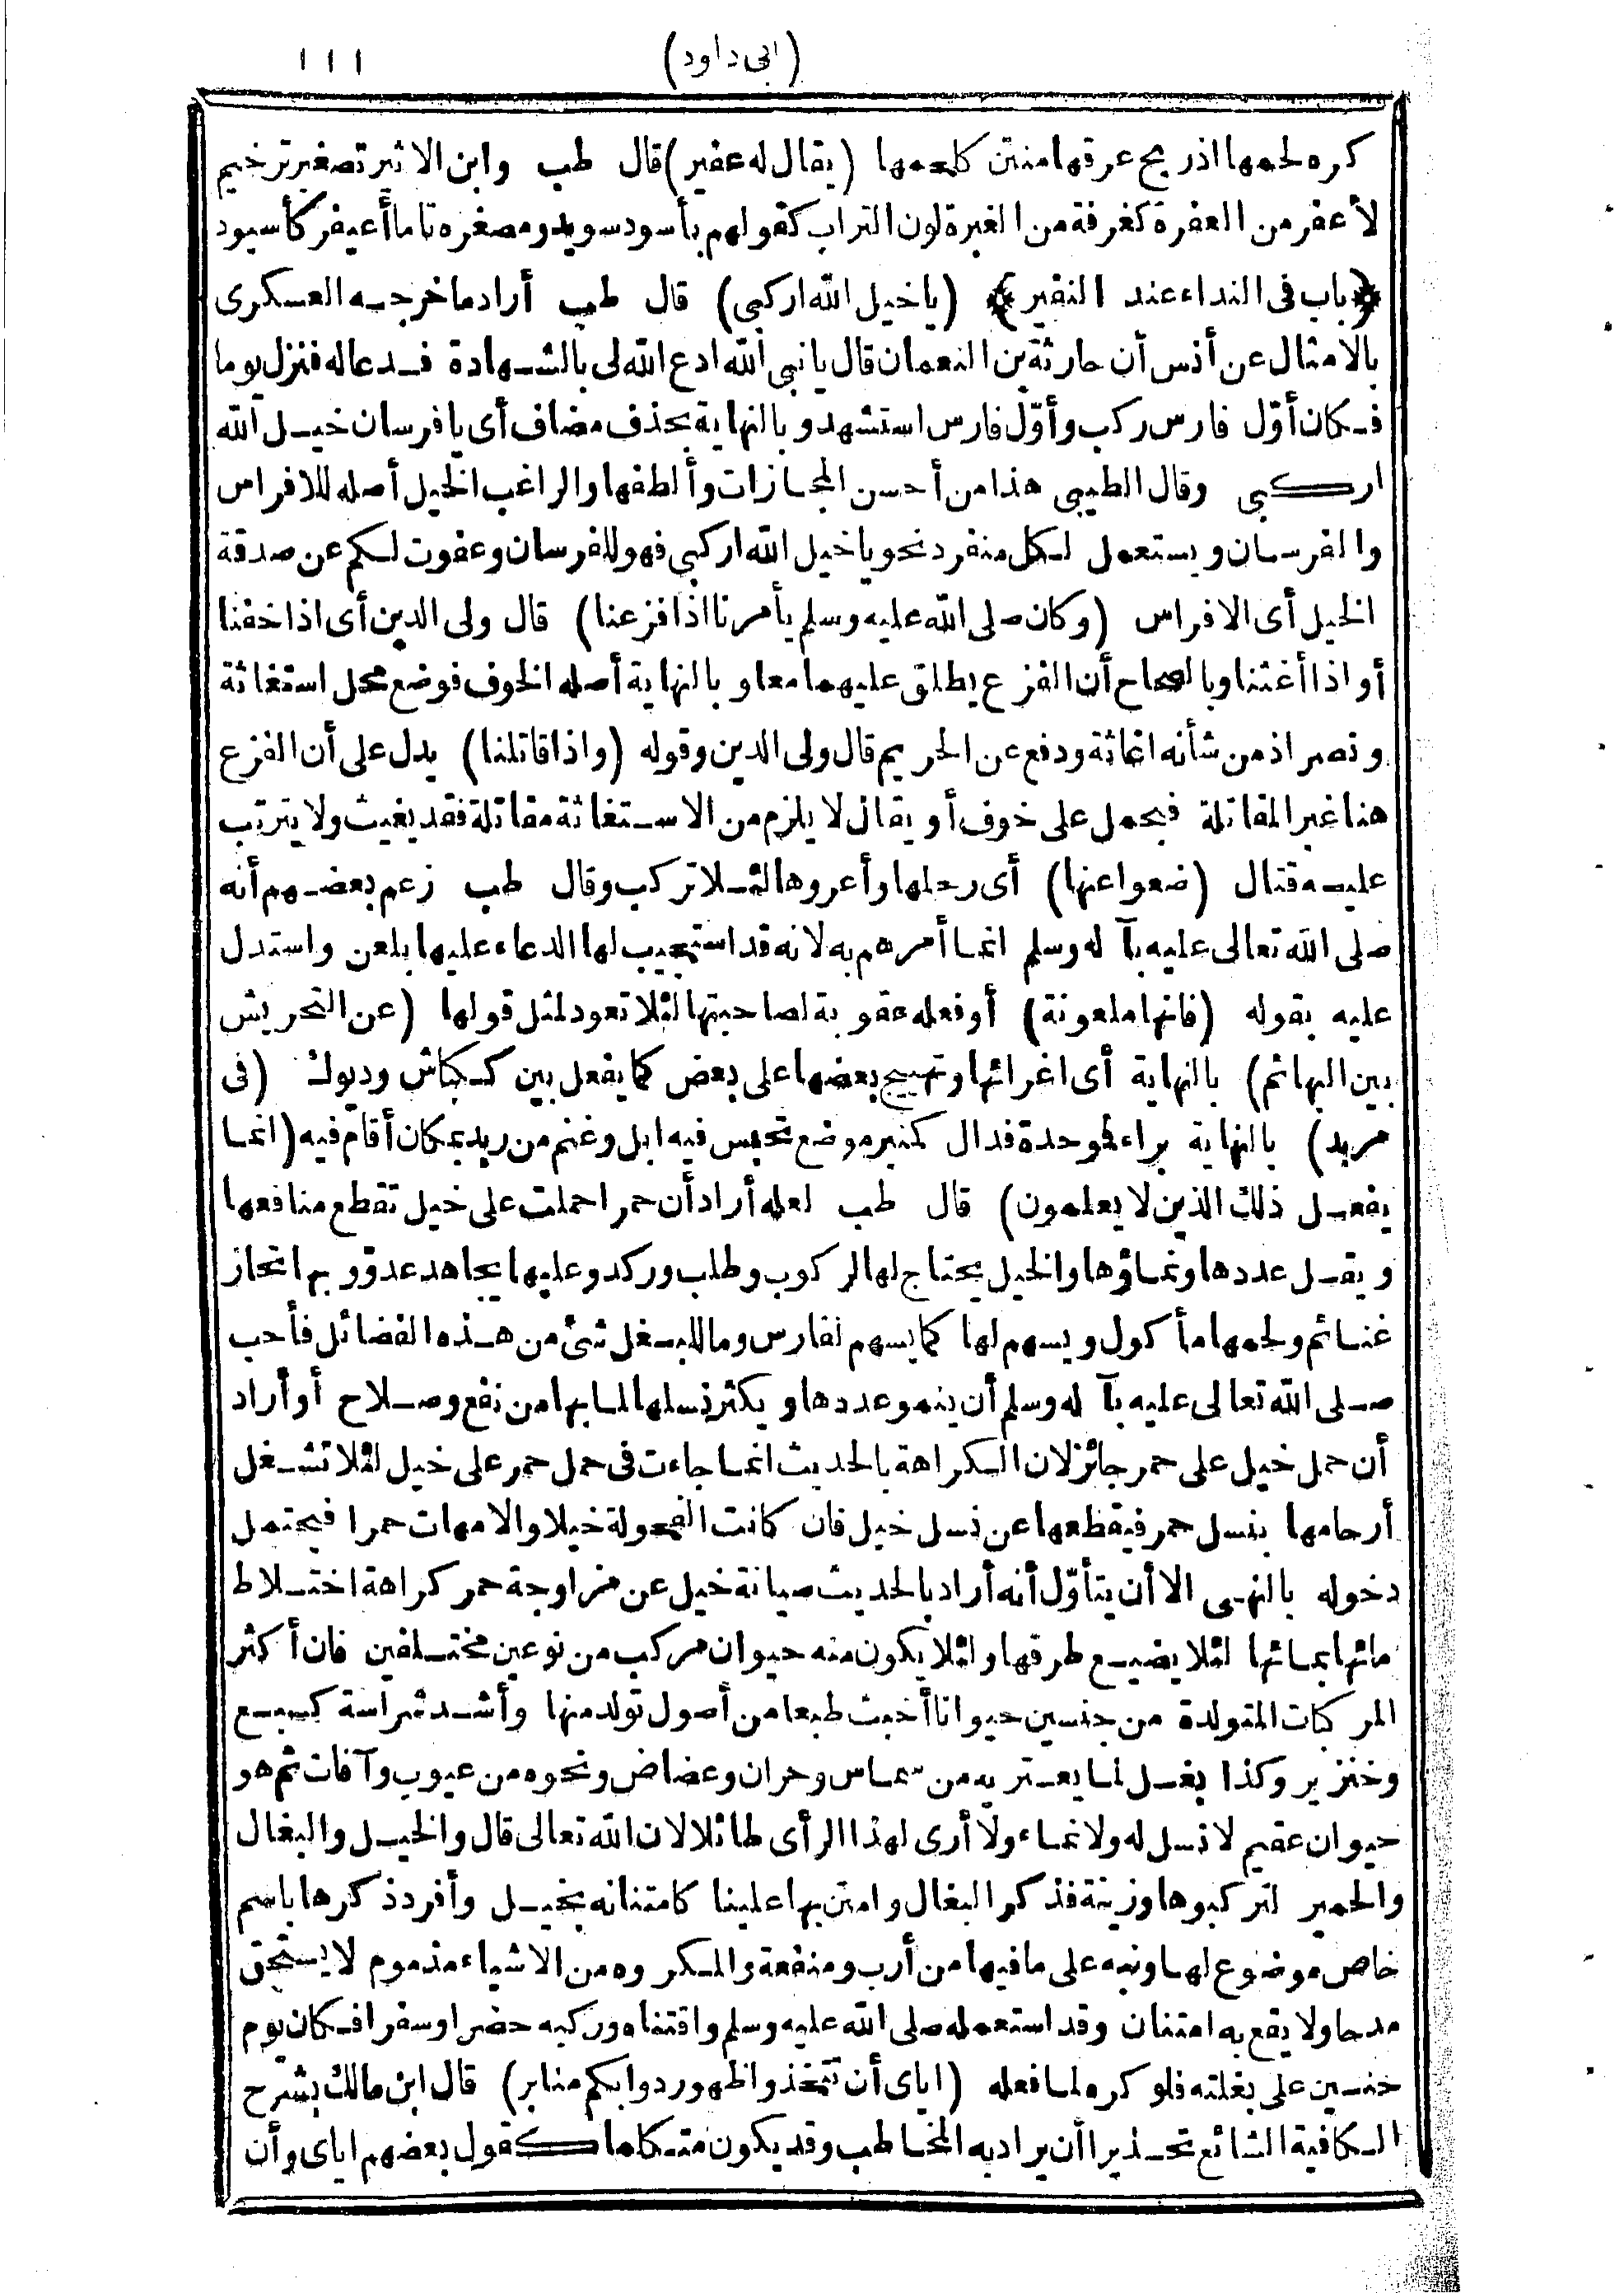 (ابى داود) ١١١
كره لحمها اذ ريح عرقها منتن كلحمها (يقال له عفير) قال طب وابن الاثير تصغير ترخيم
لأعفر من العفرة كغرفة من الغبرة لون التراب كقولهم بأسود سويد ومصغره تاما أعيفر كأسيود
﴿باب فى النداء عند النفير﴾ (يا خيل الله اركبى) قال طب أراد ما خرجه العسكرى
بالامثال عن أنس أن حارثة بن النعمان قال يا نبى الله ادع الله لى بالشهادة فدعا له فنزل يوما
فكان أوّل فارس ركب وأوّل فارس استشهد وبالنهاية بحذف مضاف أى يا فرسان خيل الله
اركبى وقال الطيبى هذا من أحسن المجازات وألطفها والراغب الخيل أصله للافراس
والفرسان ويستعمل لكل منفرد نحو يا خيل الله اركبى فهو للفرسان وعفوت لكم عن صدقة
الخيل أى الافراس (وكان صلى الله عليه وسلم يأمرنا اذا فزعنا) قال ولى الدين أى اذا خفنا
أو اذا أغثنا وبالصحاح أن الفزع يطلق عليهما معا وبالنهاية أصله الخوف فوضع محل استغاثة
ونصر اذ من شأنه اغاثة ودفع عن الحريم قال ولى الدين وقوله (واذا قاتلنا) يدل على أن الفزع
هنا غير المقاتلة فيحمل على خوف أو يقال لا يلزم من الاستغاثة مقاتلة فقد يغيث ولا يترتب
عليه قتال (ضعوا عنها) أى رحلها وأعروها لئلا تركب وقال طب زعم بعضهم أنه
صلى الله تعالى عليه بآله وسلم انما أمرهم به لانه قد استجيب لها الدعاء عليها بلعن واستدل
عليه بقوله (فانها ملعونة) أو فعله عقوبة لصاحبتها لئلا تعود لمثل قولها (عن التحريش
بين البهائم) بالنهاية أى اغرائها وتهييج بعضها على بعض كما يفعل بين كباش وديوك (فى
مربد) بالنهاية براء فموحدة فدال كمنبر موضع تحبس فيه ابل وغنم من ربد بمكان أقام فيه (انما
يفعل ذلك الذين لا يعلمون) قال طب لعله أراد أن حمرا حملت على خيل تقطع منافعها
ويقل عددها ونماؤها والخيل يحتاج لها لركوب وطلب وركد وعليها يجاهد عدوّ وبها تحاز
غنائم ولحمها مأكول ويسهم لها كما يسهم لفارس وما للبغل شئ من هذه الفضائل فأحب
صلى الله تعالى عليه بآله وسلم أن ينمو عددها ويكثر نسلها لما بها من نفع وصلاح أو أراد
أن حمل خيل على حمر جائز لان الكراهة بالحديث انما جاءت فى حمل حمر على خيل لئلا تشغل
أرحامها بنسل حمر فيقطعها عن نسل خيل فان كانت الفحولة خيلا والامهات حمرا فيحتمل
دخوله بالنهى الا أن يتأوّل أنه أراد بالحديث صيانة خيل عن مزاوجة حمر كراهة اختلاط
مائها بمائها لئلا يضيع طرقها ولئلا يكون منه حيوان مركب من نوعين مختلفين فان أكثر
المركبات المتولدة من جنسين حيوانا أخبث طبعا من أصول تولد منها وأشد شراسة كسبع
وخنزير وكذا بغل لما يعتريه من شماس وحران وعضاض ونحوه من عيوب وآفات ثم هو
حيوان عقيم لا نسل له ولا نماء ولا أرى لهذا الرأى طائلا لان الله تعالى قال والخيل والبغال
والحمير لتركبوها وزينة فذكر البغال وامتن بها علينا كامتنانه بخيل وأفرد ذكرها باسم
خاص موضوع لها ونبه على ما فيها من أرب ومنفعة والمكروه من الاشياء مذموم لا يستحق
مدحا ولا يقع به امتنان وقد استعمله صلى الله عليه وسلم واقتناه وركبه حضرا وسفرا فكان يوم
حنين على بغلته فلو كره لما فعله (اياى أن تتخذوا ظهور دوابكم منابر) قال ابن مالك بشرح
الكافية الشائع تحذيرا أن يراد به المخاطب وقد يكون متكلما كقول بعضهم اياى وأن